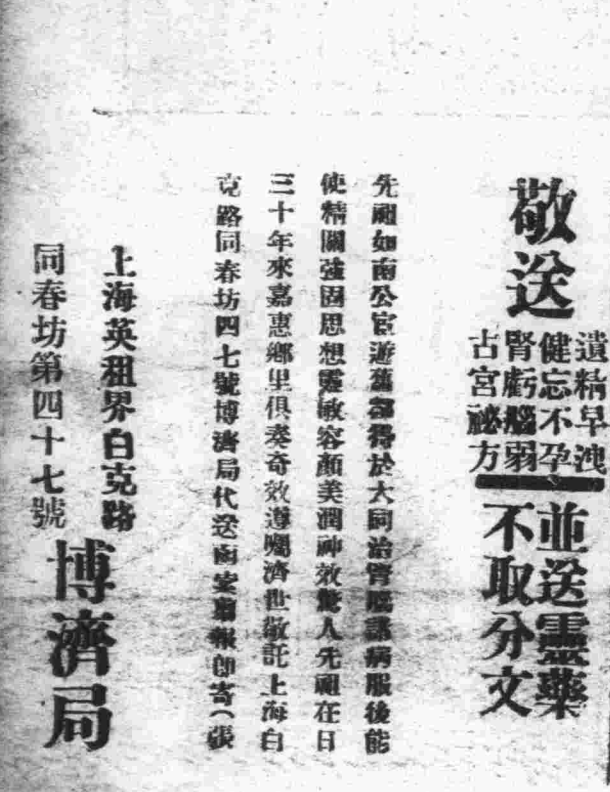 敬送
遺精早洩
健忘不孕
腎虧腦弱
古宮祕方
並送靈藥
不取分文
先祖如南公官遊舊都得於大同治腎腦諸病服後能
使精關強固思想靈敏容顏美潤神效驚人先祖在日
三十年來嘉惠鄉里俱奏奇效遵囑濟世敬託上海白
克路同春坊四七號博濟局代送函索報即寄(張
上海英租界白克路
同春坊第四十七號
博濟局